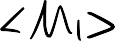 <M₁>